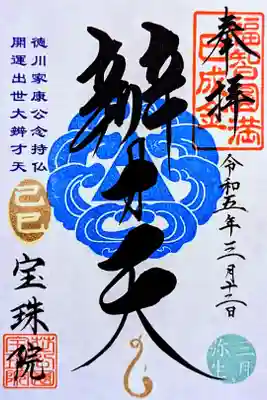 奉拝
福智円満
令和五年三月十二日
辨才天
徳川家康公念持仏
開運出世大辨才天
己巳
宝珠院
三月
弥生